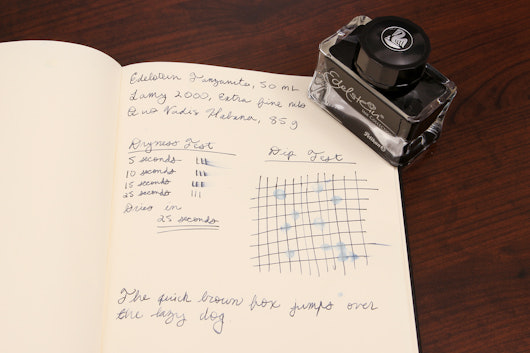 Edelstein Tanzanite, 50 mL
Lamy 2000, Extra fine nib
Quo Vadis Habana, 85g
Dryness Test
5 seconds
10 seconds
15 seconds
25 seconds
Dries in
25 seconds
Dip Test
The quick brown fox jumps over
the lazy dog
Edelstein
Pelikan